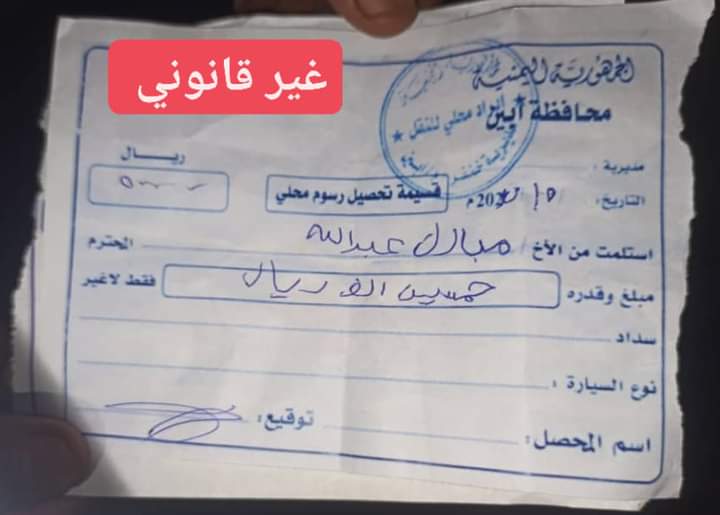 غير قانوني
الجمهورية اليمنية
محافظة أبين
ايراد محلي للنقل
مديرية :
ريال
التاريخ:
قسيمة تحصيل رسوم محلي
استلمت من الأخ / مبارك عبدالله المحترم
مبلغ وقدره خمسين الف ريال فقط لاغير
سداد
نوع السيارة :
اسم المحصل: توقيع: